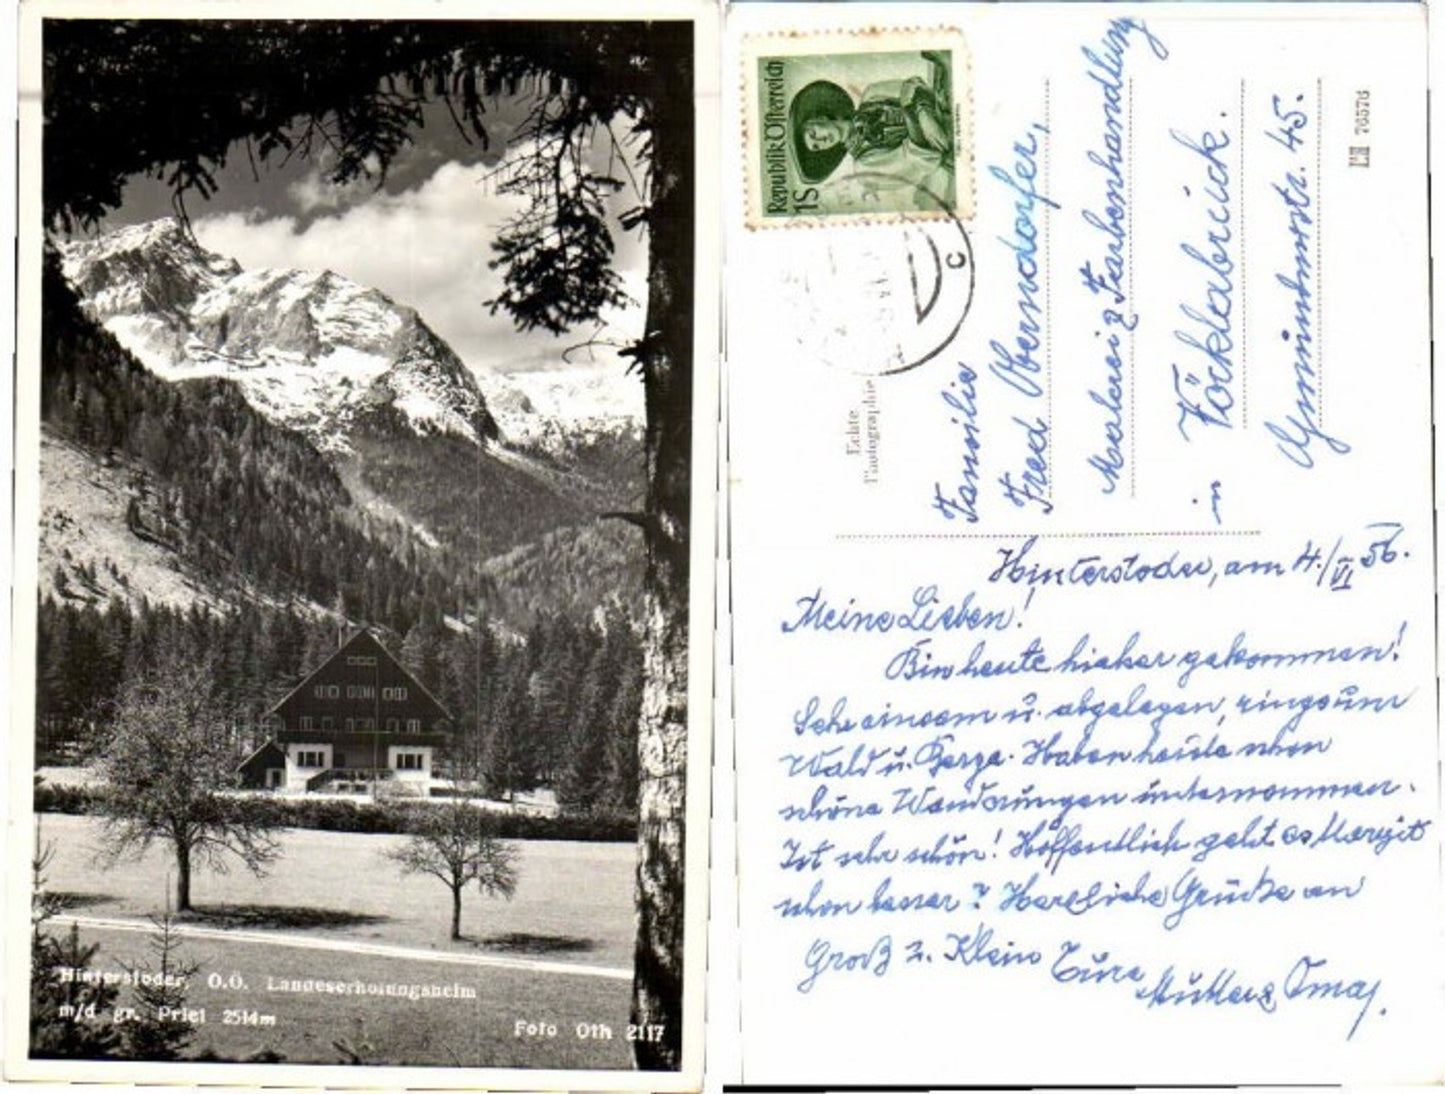 Hinterstoder, O.Ö. Landeserholungsheim
m/d gr. Priel 2514m
Foto Oth 2117
Republik Österreich
1S
C
Echte
Photographie
76576
Familie
Fred Oberndorfer,
Malerei & Farbenhandlung
in Vöcklabruck.
Gmundnerstr. 45.
Hinterstoder, am 4./VI 56.
Meine Lieben!
Bin heute hieher gekommen!
Sehr einsam u. abgelegen, ringsum
Wald u. Berge. Haben heute schon
schöne Wanderungen unternommen.
Ist sehr schön! Hoffentlich geht es Margit
schon besser? Herzliche Grüße an
Groß u. Klein Eure
Mutter & Oma.